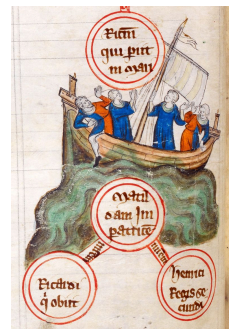 qui piit
in mari
Matil
dam Im
patricē
Ricardi
q̇ obiit
henrici
Regis se
cundi